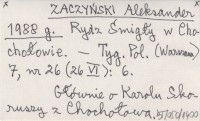 ZACZYŃSKI Aleksander
1988 g. Rydz Śmigły w Cho-
chołowie. — Tyg. Pol. (Warszawa)
7, nr 26 (26 VI): 6.
Głównie o Karolu Sko-
ruszy z Chochołowa.